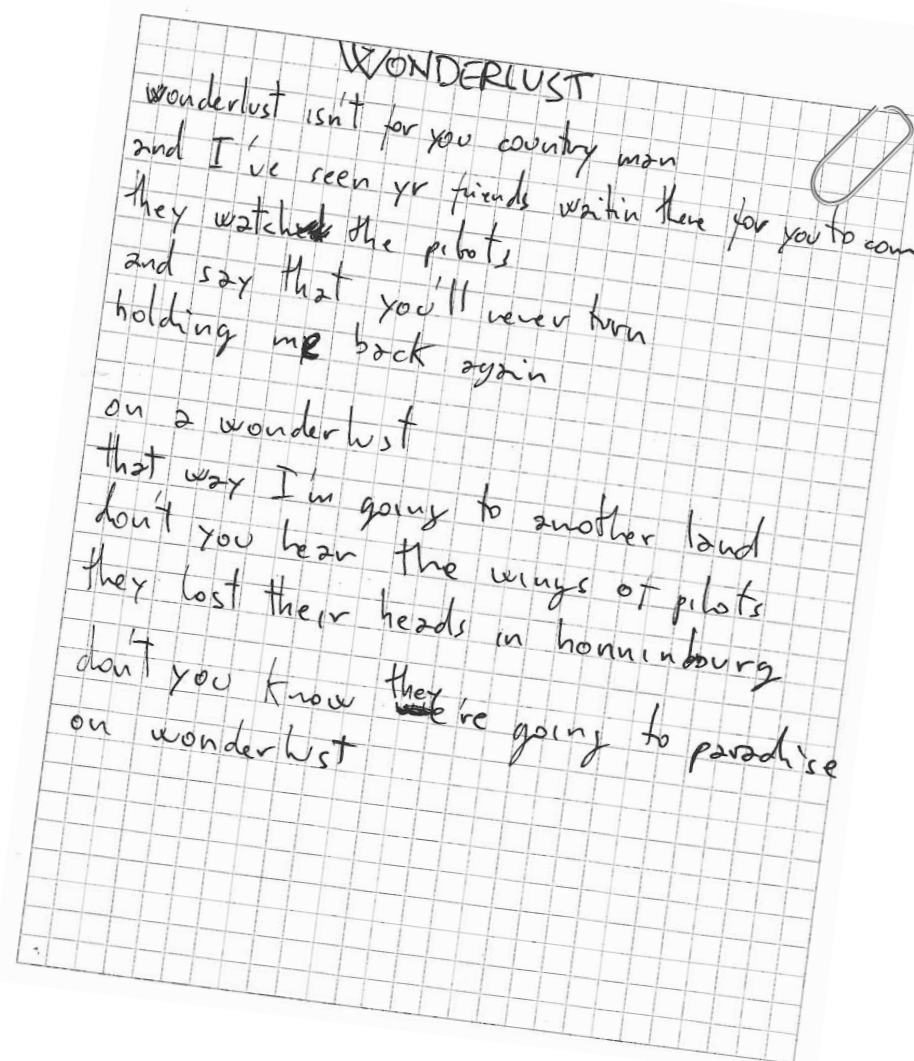 WONDERLUST
wonderlust isn't for you country man
and I've seen yr friends waitin there for you to com
they watch the pilots
and say that you'll never turn
holding me back again
on a wonderlust
that way I'm going to another land
don't you hear the wings of pilots
they lost their heads in honninbourg
don't you know they're going to paradise
on wonderlust